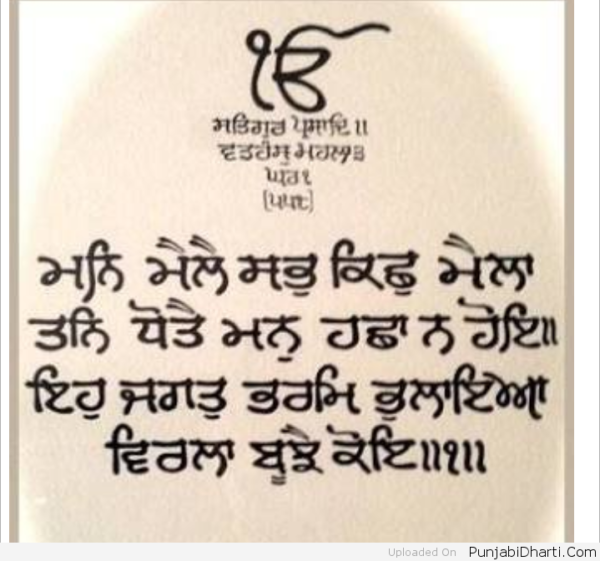 ੴ
ਸਤਿਗੁਰ ਪ੍ਰਸਾਦਿ॥
ਵਡਹੰਸੁ ਮਹਲਾ੩
ਘਰ੧
(੫੫੮)
ਮਨਿ ਮੈਲੈ ਸਭੁ ਕਿਛੁ ਮੈਲਾ
ਤਨਿ ਧੋਤੈ ਮਨੁ ਹਛਾ ਨ ਹੋਇ॥
ਇਹੁ ਜਗਤੁ ਭਰਮਿ ਭੁਲਾਇਆ
ਵਿਰਲਾ ਬੂਝੈ ਕੋਇ॥੧॥
Uploaded On PunjabiDharti.Com